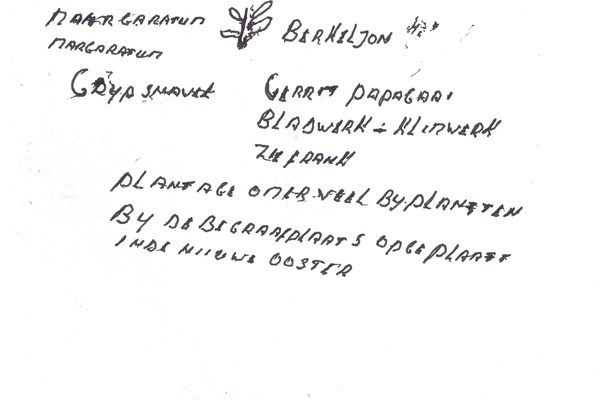 MARGARATUM BERKELJON
MARGARATUM
GRYPSNAVEL GERRIT PAPAGAAI
BLADWERK = KLIMWERK
ZIE FRANK
PLANTAGE OMER VEEL BY PLANTTEN
BY DE BEGRAAFPLAATS OPGEPLAATT
INDE NIIUWE OOSTER